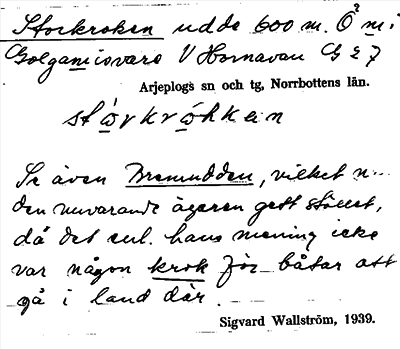 Storkroken udde 600 m. Ö m:
Golganisvare V Hornavan G 2 7
Arjeplogs sn och tg, Norrbottens län.
stórkrókken
Se även Bremudden, vilket n...
den nuvarande ägaren gett stället,
då det enl. hans mening icke
var någon krok för båtar att
gå i land där.
Sigvard Wallström, 1939.